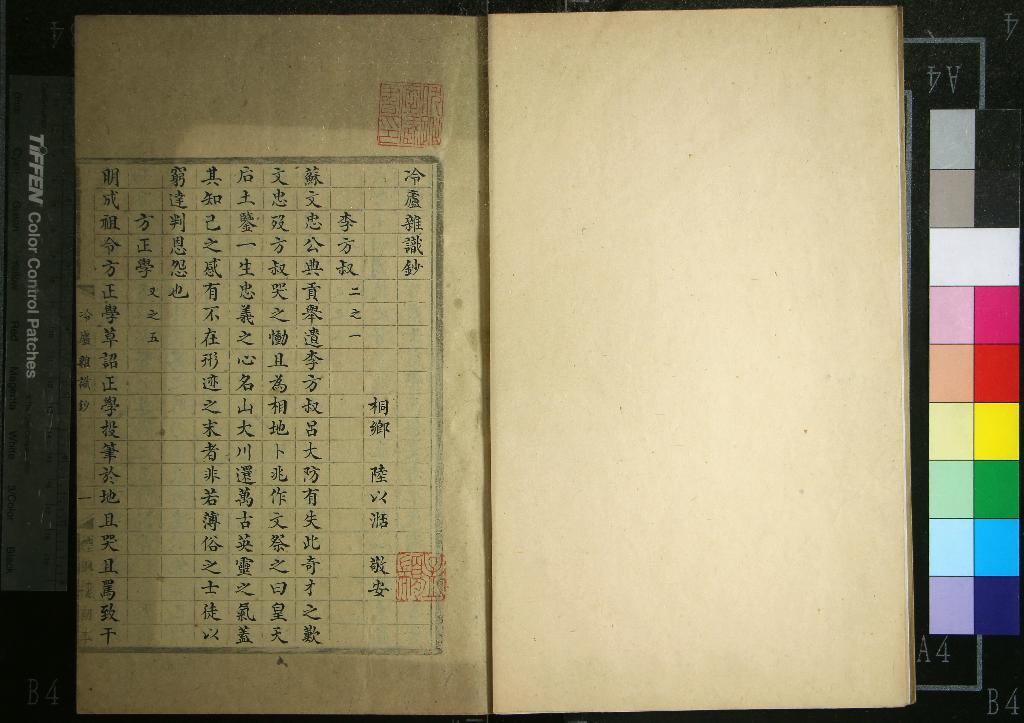 冷廬雜識鈔
桐鄉 陸以湉 敬安
李方叔 二之一
蘇文忠公典貢舉遺李方叔呂大防有失此奇才之歎
文忠歿方叔哭之慟且為相地卜兆作文祭之曰皇天
后土鑒一生忠義之心名山大川還萬古英靈之氣蓋
其知己之感有不在形迹之末者非若薄俗之士徒以
窮達判恩怨也
方正學 又之五
明成祖令方正學草詔正學投筆於地且哭且罵致干
冷廬雜識鈔
一
TIFFEN Color Control Patches
A4
A4
B4
B4